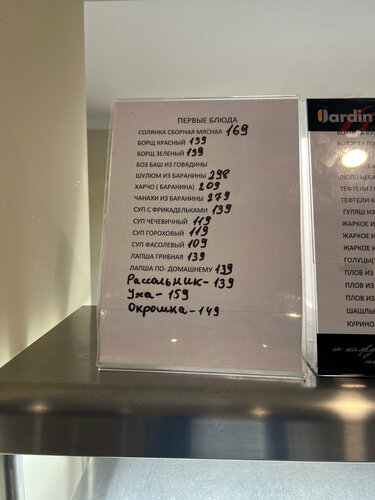 ПЕРВЫЕ БЛЮДА
СОЛЯНКА СБОРНАЯ МЯСНАЯ 169
БОРЩ КРАСНЫЙ 139
БОРЩ ЗЕЛЕНЫЙ 139
БОЗ БАШ ИЗ ГОВЯДИНЫ
ШУЛЮМ ИЗ БАРАНИНЫ 298
ХАРЧО ( БАРАНИНА) 209
ЧАНАХИ ИЗ БАРАНИНЫ 279
СУП С ФРИКАДЕЛЬКАМИ 139
СУП ЧЕЧЕВИЧНЫЙ 119
СУП ГОРОХОВЫЙ 119
СУП ФАСОЛЕВЫЙ 109
ЛАПША ГРИБНАЯ 139
ЛАПША ПО- ДОМАШНЕМУ 139
Рассольник - 139
Уха - 159
Окрошка - 149
Jardin
КОТЛЕТА
ТЕФТЕЛИ
ТЕФТЕЛИ
ГУЛЯШ ИЗ
ЖАРКОЕ
ЖАРКОЕ ИЗ
ЖАРКОЕ ИЗ
ГОЛУБЦЫ
ПЛОВ ИЗ
ПЛОВ ИЗ
ПЛОВ ИЗ